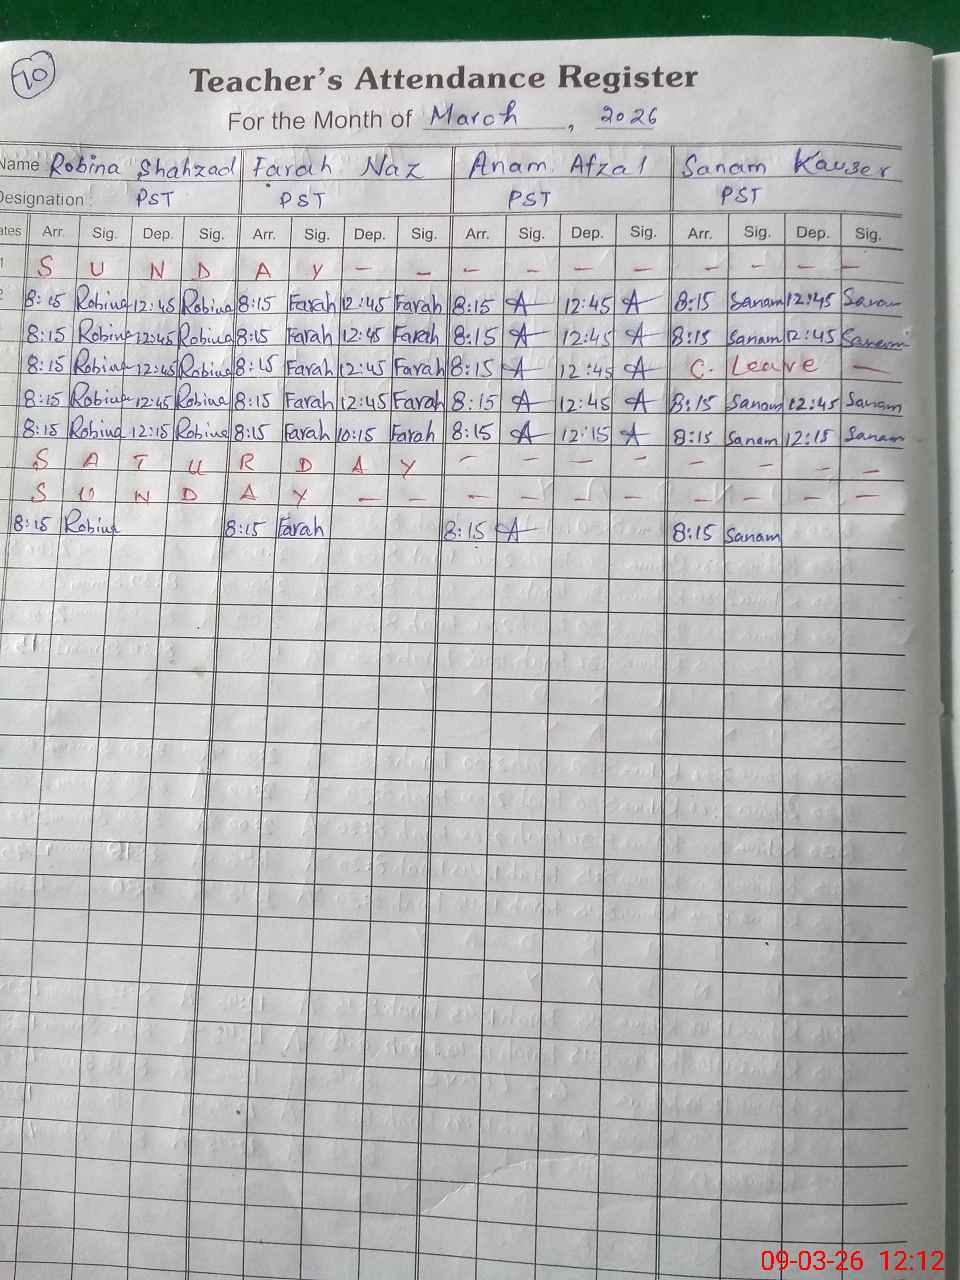 20
Teacher's Attendance Register
For the Month of March, 2026
Name Robina Shahzad Farah Naz Anam Afzal Sanam Kauser
Designation: PST PST PST PST
ates Arr. Sig. Dep. Sig. Arr. Sig. Dep. Sig. Arr. Sig. Dep. Sig. Arr. Sig. Dep. Sig.
1 S U N D A Y - - - - - - - - - -
2 8:15 Robina 12:45 Robina 8:15 Farah 12:45 Farah 8:15 A 12:45 A 8:15 Sanam 12:45 Sanam
8:15 Robina 12:45 Robina 8:15 Farah 12:45 Farah 8:15 A 12:45 A 8:15 Sanam 12:45 Sanam
8:15 Robina 12:45 Robina 8:15 Farah 12:45 Farah 8:15 A 12:45 A C. Leave -
8:15 Robina 12:45 Robina 8:15 Farah 12:45 Farah 8:15 A 12:45 A 8:15 Sanam 12:45 Sanam
8:15 Robina 12:15 Robina 8:15 Farah 10:15 Farah 8:15 A 12:15 A 8:15 Sanam 12:15 Sanam
S A T U R D A Y - - - - - - - -
S U N D A Y - - - - - - - - - -
8:15 Robina 8:15 Farah 8:15 A 8:15 Sanam
09-03-26 12:12